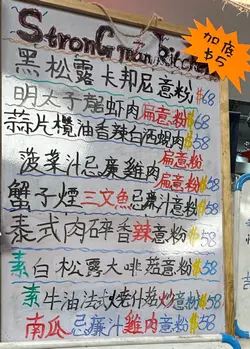 StronG man
加底
$5
黑松露卡邦尼意粉 $68
明太子龍蝦肉扁意粉 $68
蒜片欖油香辣白酒蜆肉扁意粉 $58
菠菜汁忌廉雞肉扁意粉 $58
蟹子煙三文魚忌廉汁意粉 $58
泰式肉碎香辣意粉 $58
素白松露大啡菇意粉 $58
素牛油法式燒什菇炒意粉 $58
南瓜忌廉汁雞肉意粉 $58